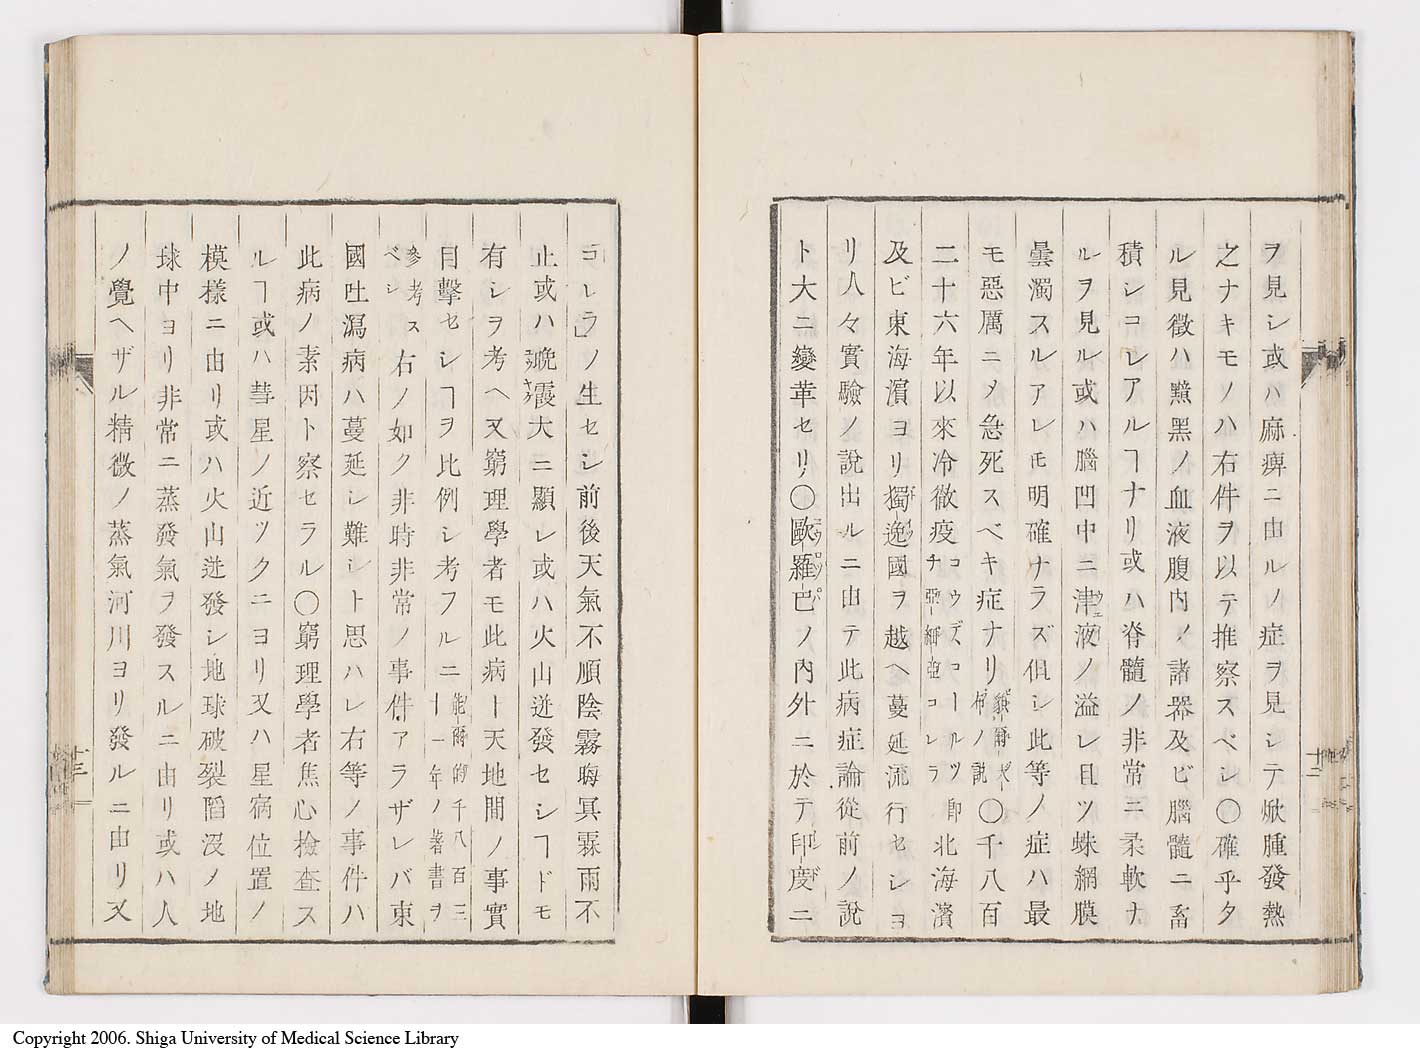 ヲ見シ或ハ麻痺ニ由ルノ症ヲ見シテ焮腫發熱
之ナキモノハ右件ヲ以テ推察スベシ〇確乎タ
ル見徴ハ黯黑ノ血液腹内ノ諸器及ビ腦髓ニ畜
積シコレアルヿナリ或ハ脊髓ノ非常ニ柔軟ナ
ルヲ見ル或ハ腦凹中ニ津液ノ溢レ且ツ蛛網膜
曇濁スルアレ𪜈明確ナラズ倶シ此等ノ症ハ最
モ惡厲ニメ急死スベキ症ナリ 〇千八百
二十六年以來冷徹疫 コウデズコールツ 即北海濱
チ亞細亞コレラ
及ビ東海濱ヨリ獨逸國ヲ越ヘ蔓延流行セシヨ
リ人々實驗ノ說出ルニ由テ此病症論從前ノ說
ト大ニ變革セリ〇歐羅巴ノ内外ニ於テ印度ニ
十二
コレラ」ノ生セシ前後天氣不順陰霧晦冥霖雨不
止或ハ晩霞大ニ顯レ或ハ火山迸發セシヿドモ
有シヲ考ヘ又窮理學者モ此病ト天地間ノ事實
目擊セシヿヲ比例シ考フルニ 千八百三
十一年ノ著書ヲ
參考ス
ベシ 右ノ如ク非時非常ノ事件アラザレバ東
國吐瀉病ハ蔓延シ難シト思ハレ右等ノ事件ハ
此病ノ素因ト察セラル〇窮理學者焦心撿查ス
ルヿ或ハ彗星ノ近ツクニヨリ又ハ星宿位置ノ
模樣ニ由リ或ハ火山迸發シ地球破裂陷沒ノ地
球中ヨリ非常ニ蒸發氣ヲ發スルニ由リ或ハ人
ノ覺ヘザル精微ノ蒸氣河川ヨリ發ルニ由リ又
十三
Copyright 2006. Shiga University of Medical Science Library